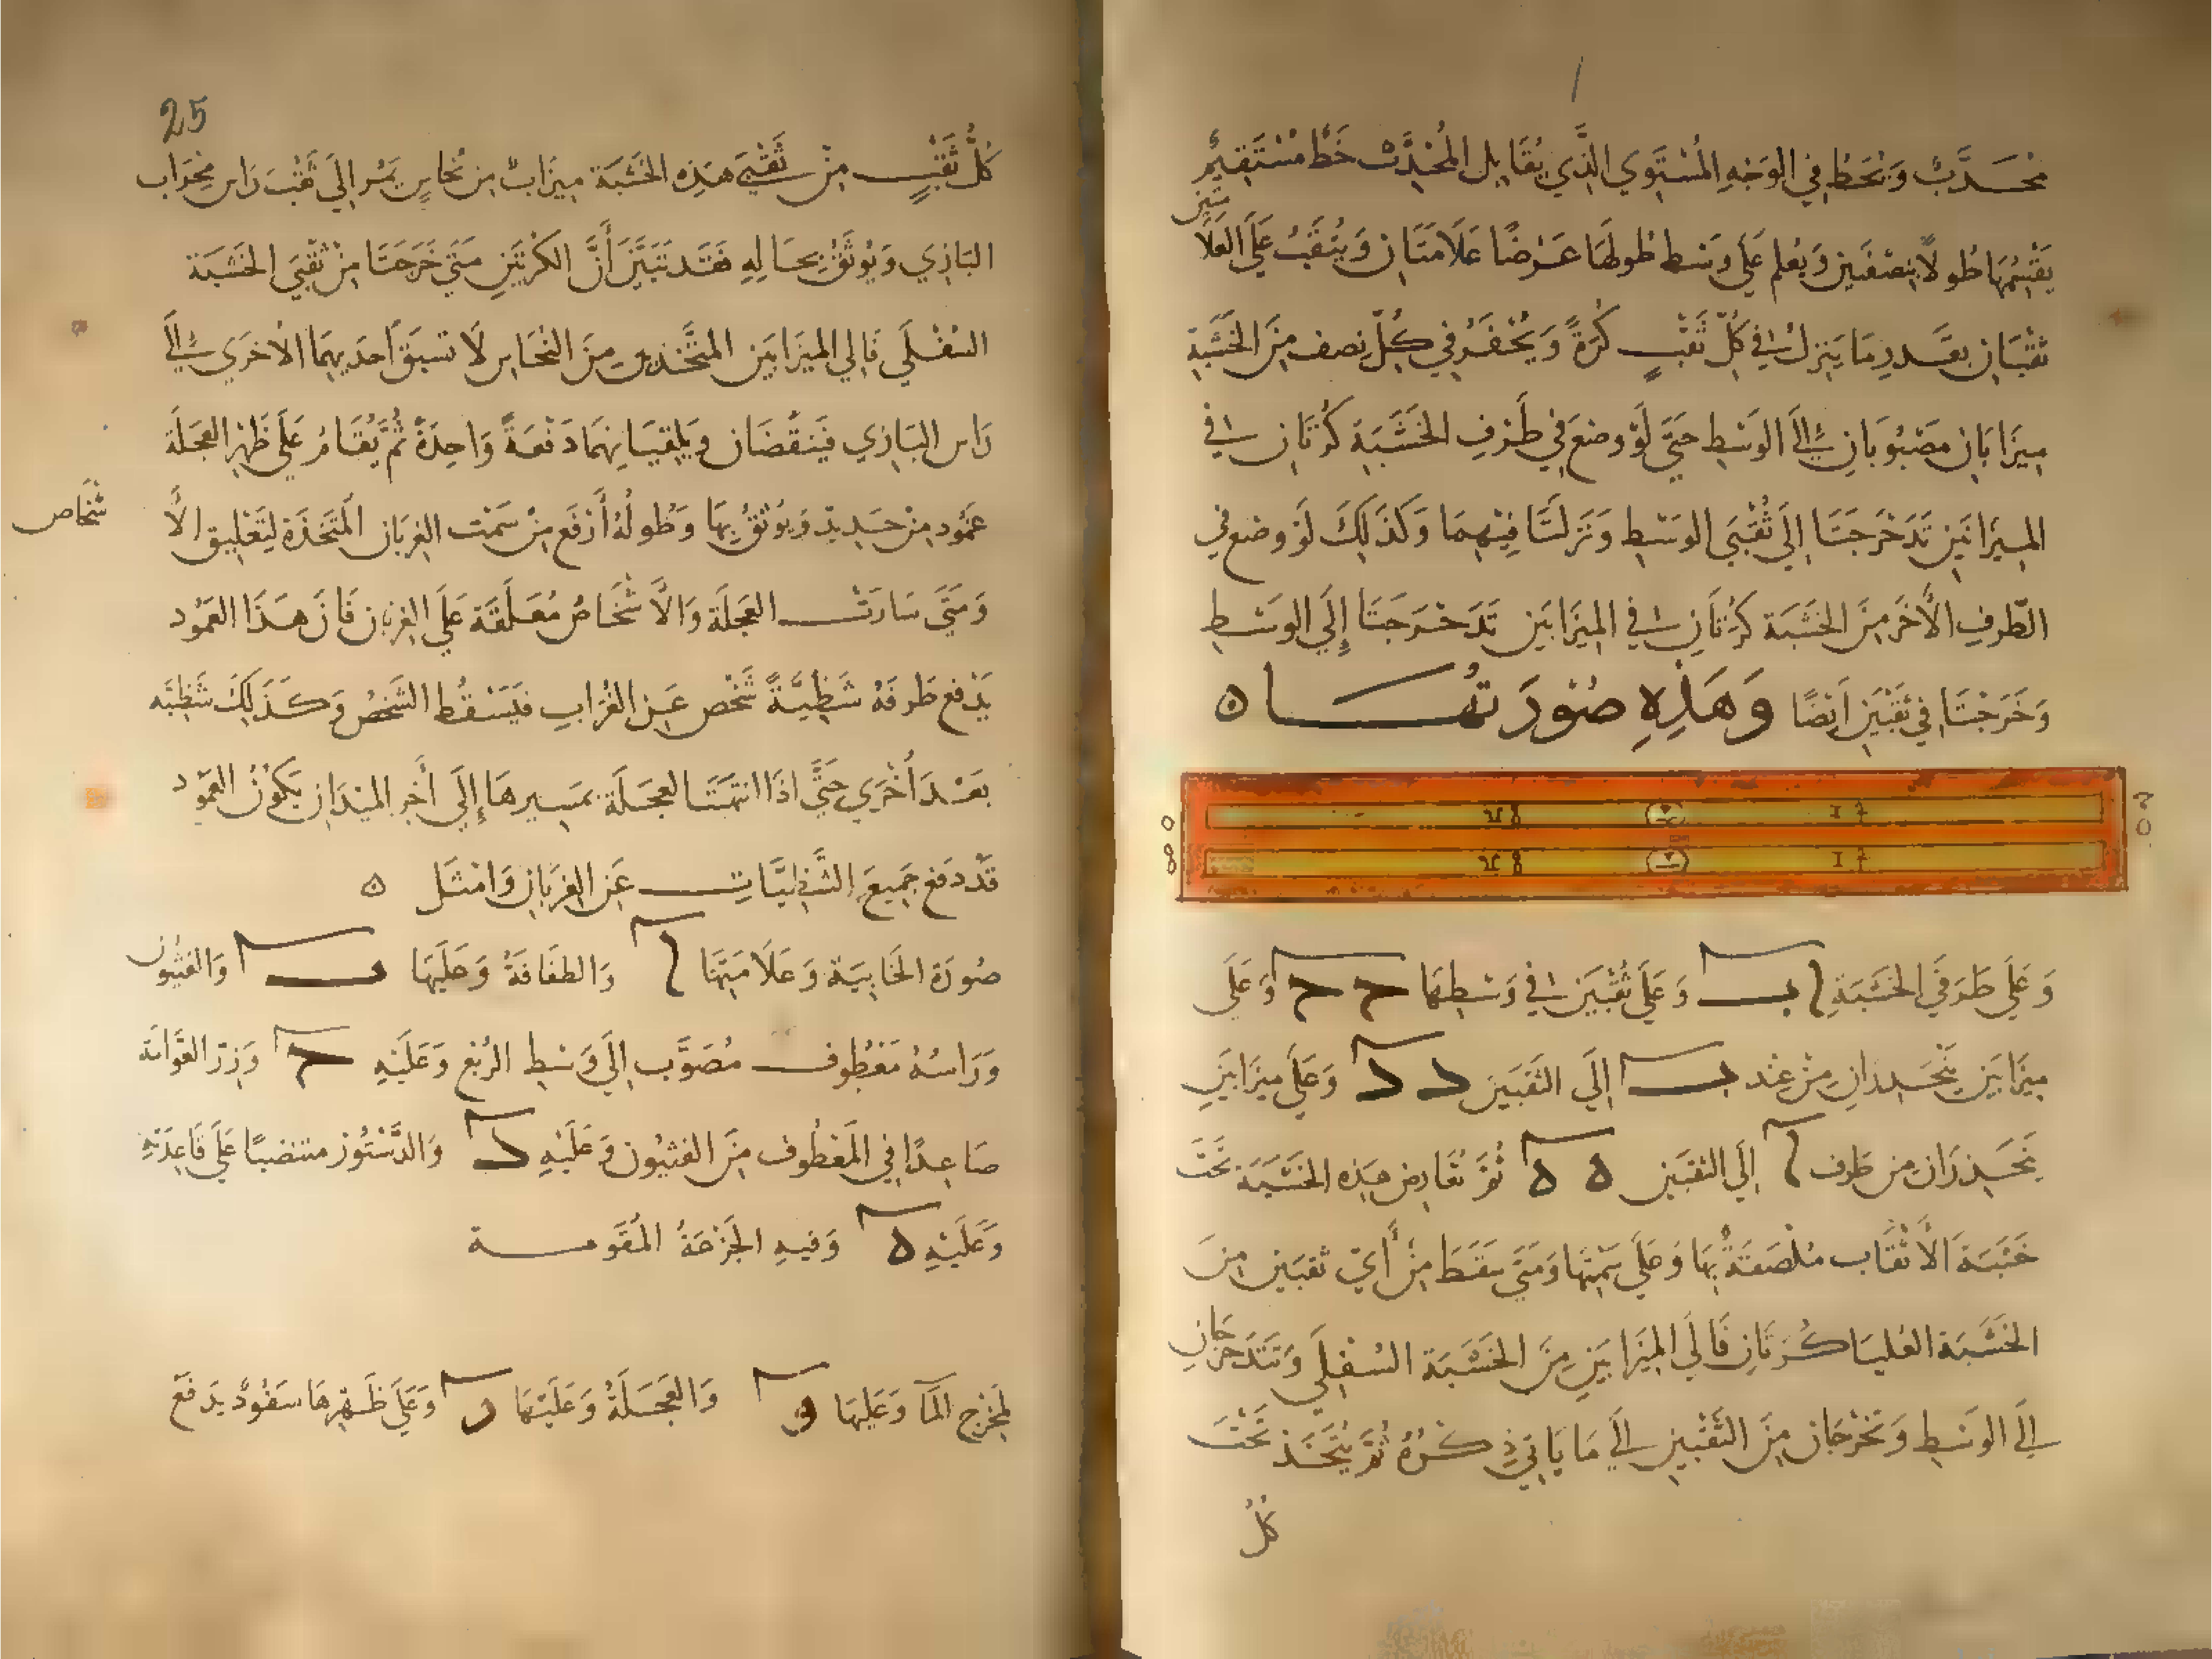 محدب ويخط في الوجه المستوي الذي يقابل المحدب خط مستقيم
يقسمها طولا بنصفين ويعلم على وسط طولها عرضا علامتان ويثقب على العلا
متين
ثقبان بقدر ما ينزل في كل ثقب كرة ويحفر في كل نصف من الخشبة
ميزابان مصبوبان الى الوسط حتى لو وضع في طرف الخشبة كرتان في
الميزابين تدحرجتا الى ثقبي الوسط ونزلتا فيهما وكذلك لو وضع في
الطرف الاخر من الخشبة كرتان في الميزابين تدحرجتا إلى الوسط
وخرجتا في ثقبين ايضا وهذه صورتها ه
وعلى طرفي الخشبة ا ب وعلى ثقبين في وسطها ح ح وعلى
ميزابين ينحدران من عند ب إلى الثقبين د د وعلى ميزابين
ينحدران من طرف ا إلى الثقبين ه ه ثم تعارض هذه الخشبة تحت
خشبة الأثقاب ملصقة بها وعلى سمتها ومتى سقط من أي ثقبين من
الخشبة العليا كرتان فالى الميزابين من الخشبة السفلى وتتدحرجان
الى الوسط وتخرجان من الثقبين الى ما ياتي ذكره ثم يتخذ تحت
كل
25
كل ثقب من ثقبي هذه الخشبة ميزاب من نحاس يمر الى ثقب راس محراب
البازي ويوثق بحاله فقد تبين أن الكرتين متى خرجتا من ثقبي الخشبة
السفلى فالى الميزابين المتخذين من النحاس لا تسبق أحديهما الاخرى الى
راس البازي فينقضان ويلقيانهما دفعة واحدة ثم يقام على ظهر العجلة
عمود من حديد ويوثق بها وطوله أرفع من سمت الغربان المتخذة لتعليق الأ
شخاص
ومتى سارت العجلة والأشخاص معلقة على الغربان فان هذا العمود
يدفع طرفه شظية شخص عن الغراب فيسقط الشخص وكذلك شظية
بعد أخرى حتى اذا انتهت العجلة بمسيرها إلى أخر الميدان يكون العمود
قد دفع جميع الشظيات عن الغربان وامثل ه
صورة الخابية وعلامتها ا والطفافة وعليها ب والفثيون
وراسه معطوف مصوب الى وسط الربع وعليه ح وزر الفوامة
صاعدا في المعطوف من الفثيون وعليه د والدستور منتصبا على قاعدته
وعليه ه وفيه الجزعة المقومسة
لمخرج الما وعليها و والعجلة وعليها ر وعلى ظهرها سفود يدفع